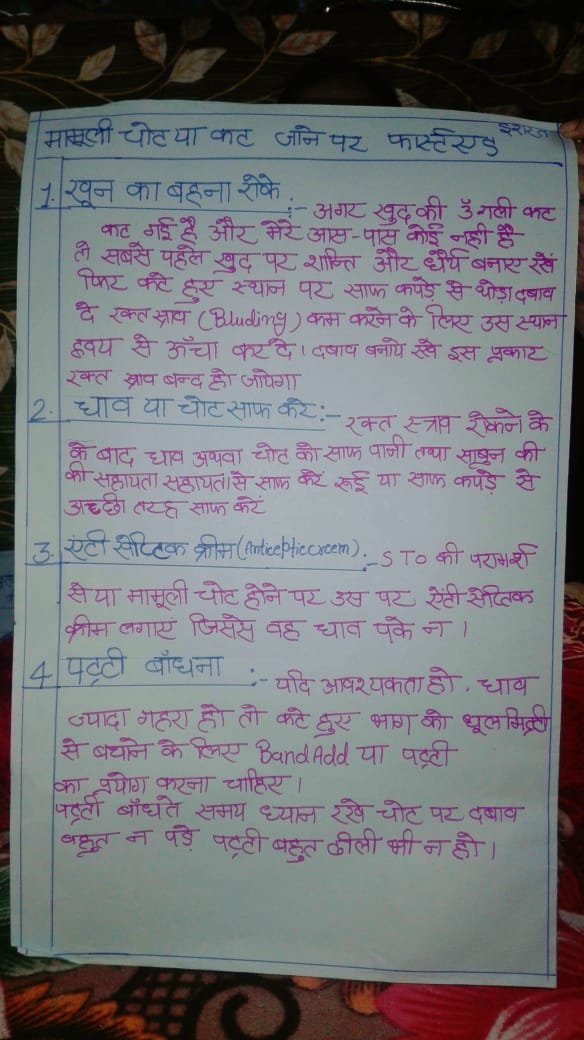 मामूली चोट या कट जाने पर फार्स्टएड
1. खून का बहना रोके :- अगर खुद की उँगली कट
कट गई है और मेरे आस-पास कोई नही है
तो सबसे पहले खुद पर शान्ति और धैर्य बनाए रखें
फिर कटे हुए स्थान पर साफ कपड़े से थोड़ा दबाव
दे रक्त स्राव (Bluding) कम करने के लिए उस स्थान
हृदय से ऊँचा कर दे। दबाव बनाये रखे इस प्रकार
रक्त स्राव बन्द हो जायेगा
2. घाव या चोट साफ करे :- रक्त स्त्राव रोकने के
के बाद घाव अथवा चोट को साफ पानी तथा साबुन की
की सहायता सहायता से साफ करें रूई या साफ कपड़े से
अच्छी तरह साफ करें
3. एंटी सेप्टिक क्रीम (Anticeptic creem) :- S To की परामर्श
से या मामूली चोट होने पर उस पर ऐंटी सेप्तिक
क्रीम लगाएं जिससे वह घाव पके न।
4 पट्टी बाँधना :- यदि आवश्यकता हो, घाव
ज्यादा गहरा हो तो कटे हुए भाग को धूल मिट्टी
से बचाने के लिए Band Add या पट्टी
का प्रयोग करना चाहिए।
पट्टी बाँधते समय ध्यान रखे चोट पर दबाव
बहुत न पड़े पट्टी बहुत ढीली भी न हो।